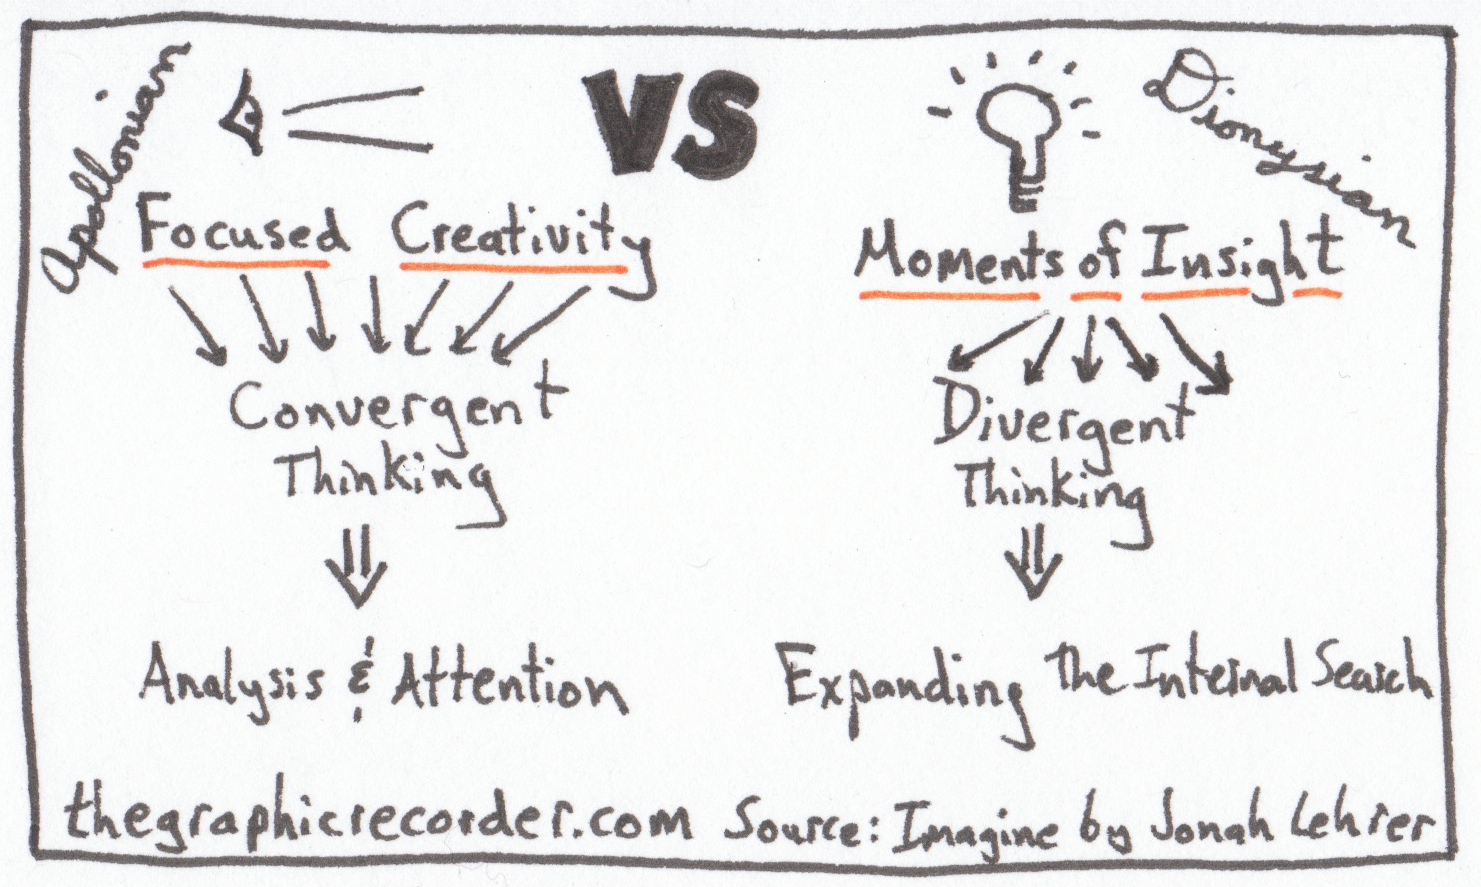 Apollonian
VS
Dionysian
Focused Creativity
Moments of Insight
Convergent
Thinking
Divergent
Thinking
Analysis & Attention
Expanding the Internal Search
thegraphicrecorder.com Source: Imagine by Jonah Lehrer